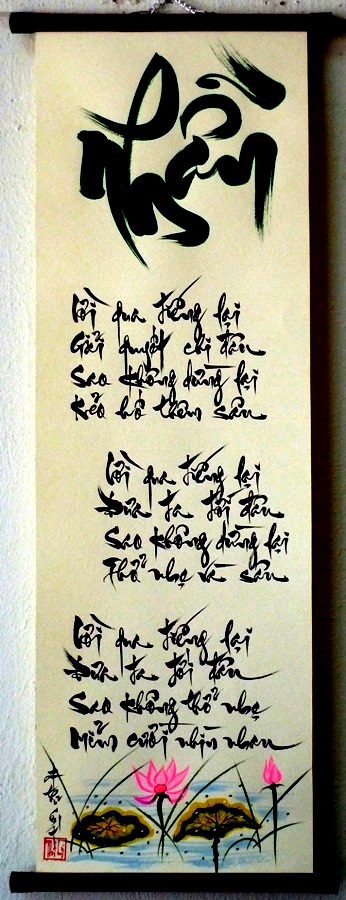 Nhẫn
Lời qua tiếng lại
Giải quyết chi đâu
Sao không dừng lại
Kẻo hố thêm sâu
Lời qua tiếng lại
Đưa ta tới đâu
Sao không dừng lại
Thở nhẹ và sâu
Lời qua tiếng lại
Đưa ta tới đâu
Sao không thở nhẹ
Mỉm cười nhìn nhau